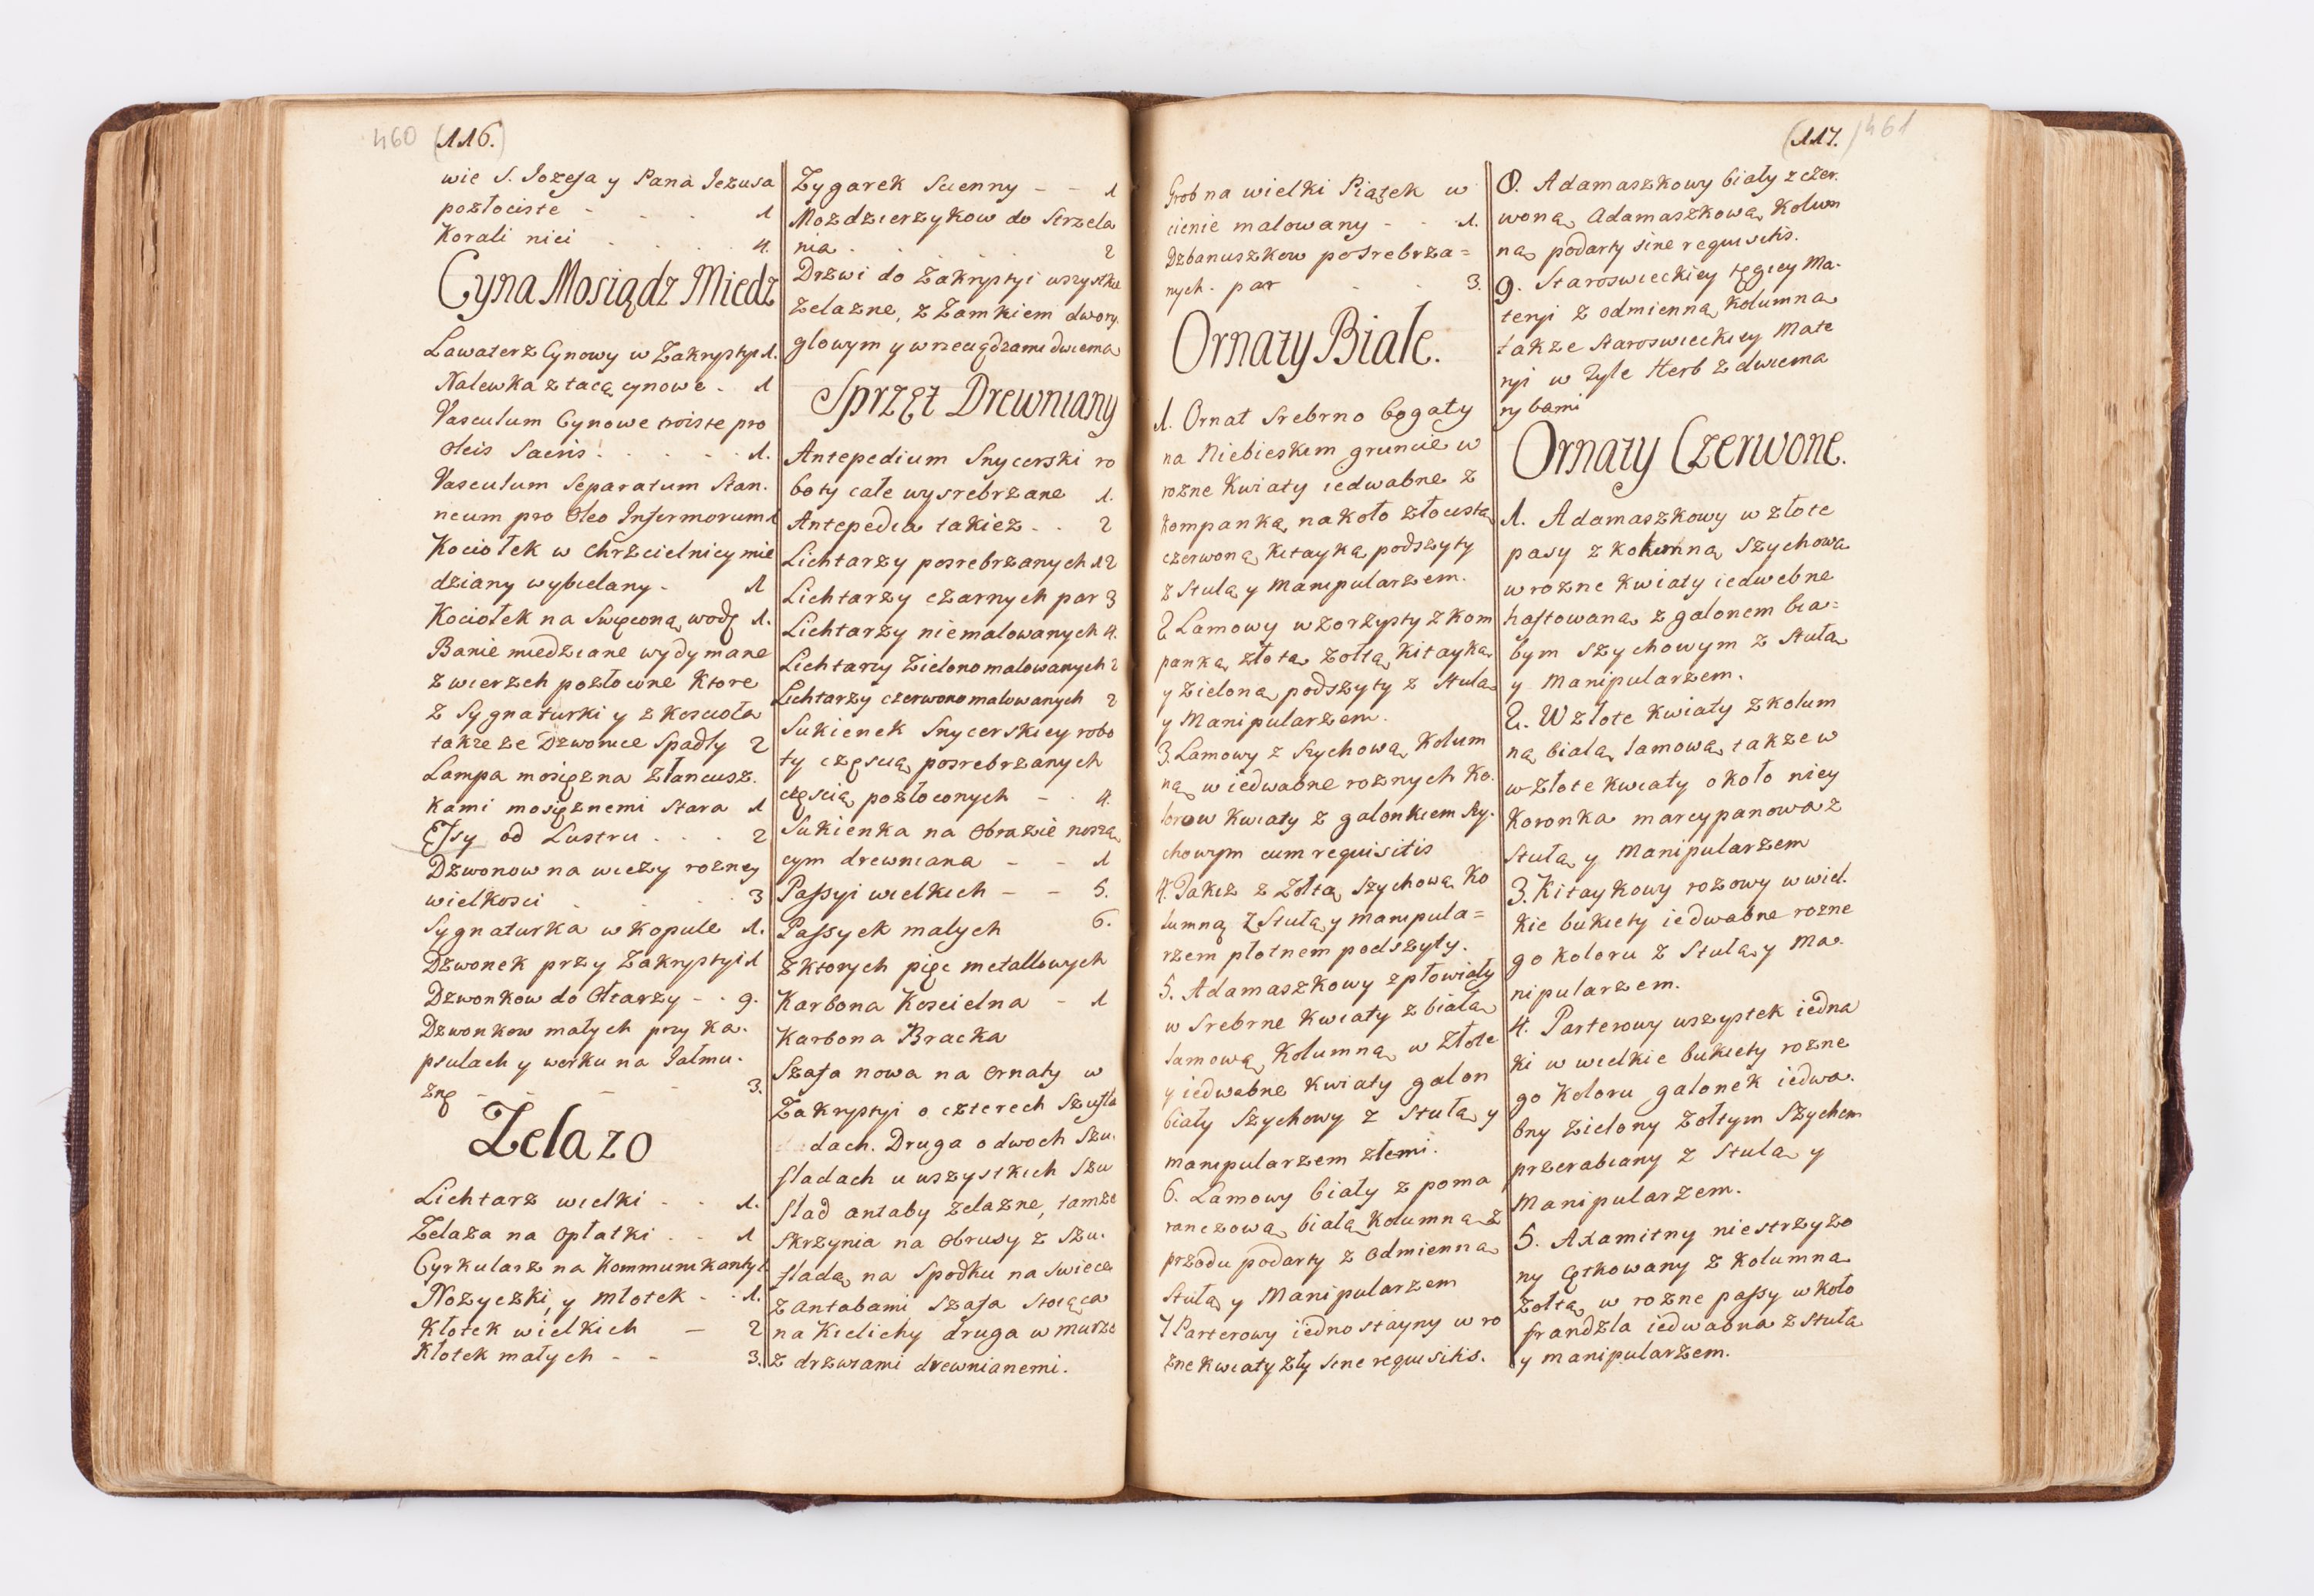 460 (116.)
wie S. Jozefa y Pana Jezusa
pozłociste - . . . 1
Korali nici . . . . 4.
Cyna Mosiądz Miedz
Lawaterz Cynowy w Zakrystyi 1.
Nalewka z tacą cynowe . 1
Vasculum Cynowe troiste pro
Oleis Sacris . . . . 1.
Vasculum Separatum Stan.
neum pro Oleo Infirmorum 1
Kociołek w Chrzcielnicy mie
dziany wybielany - 1
Kociołek na Swięconą wodę 1.
Banie miedziane wydymane
z wierzch pozłocone Ktore
z Sygnaturki y z Koscioła
takze ze Dzwonice Spadły 2
Lampa mosięzna z łancusz.
kami mosięznemi stara 1
Essy od Lustru . . . 2
Dzwonow na wiezy rozney
wielkosci . . . . 3
Sygnaturka w Kopule 1.
Dzwonek przy Zakrystyi 1
Dzwonkow do Ołtarzy - . 9.
Dzwonkow małych przy Ka.
psulach y worku na Jałmu.
znę - - - - 3.
Zelazo
Lichtarz wielki . . 1.
Zelaza na Opłatki . . 1
Cyrkularz na Kommunikanty 1
Nozyczki, y Młotek - . 1.
Kłotek wielkich — 2
Kłotek małych - - 3.
Zygarek Scienny - - 1
Mozdzierzykow do Strzela
nia . . . . 2
Drzwi do Zakrystyi wszystkie
zelazne, z Zamkiem dwory.
glowym y wrzeciądzami dwiema
Sprzęt Drewniany
Antepedium Snycerski ro
boty całe wysrebrzane 1.
Antepedia takiez . . 2
Lichtarzy posrebrzanych 12
Lichtarzy czarnych par 3
Lichtarzy niemalowanych 4.
Lichtarzy Zielono malowanych 2
Lichtarzy czerwono malowanych 2
Sukienek Snycerskiey robo
ty częscią posrebrzanych
częscią pozłoconych - . 4.
Sukienka na Obrazie noszą
cym drewniana - - 1
Passyi wielkich - - 5.
Passyek małych 6.
z Ktorych pięc metallowych
Karbona Koscielna - 1
Karbona Bracka
Szafa nowa na Ornaty w
Zakrystyi o czterech Szufla
dach. Druga o dwoch Szu.
fladach u wszystkich Szu
flad antaby zelazne, tamze
Skrzynia na Obrusy z Szu.
fladą na Spodku na Swiece
z antabami Szafa Stoiąca
na Kielichy druga w murze
z drzwiami drewnianemi.
(117.) 461
Grob na wielki Piątek w
cienie malowany - . . 1.
Dzbanuszkow posrebrza=
nych. par . . 3.
Ornaty Białe.
1. Ornat Srebrno bogaty
na Niebieskim gruncie w
rozne Kwiaty iedwabne z
kompanką nakoło złocistą
czerwoną Kitayką podszyty
z Stułą y Manipularzem.
2 Lamowy wzorzysty z kom
panką złotą zołtą Kitayką
y zieloną podszyty z Stułą
y Manipularzem.
3. Lamowy z Szychową Kolum
ną w iedwabne roznych Ko.
lorow Kwiaty z galonkiem Szy.
chowym cum requisitis
4. Takiz z Zółtą Szychową Ko
lumną z Stułą y Manipula=
rzem płotnem podszyty.
5. Adamaszkowy zpłowiały
w Srebrne Kwiaty z białą
lamową Kolumną w złote
y iedwabne Kwiaty galon
biały Szychowy z Stułą y
manipularzem złemi.
6. Lamowy biały z poma
ranczową białą Kolumną z
przodu podarty z Odmienną
Stułą y Manipularzem
7 Parterowy iednostayny w ro
zne Kwiaty zły sine requisitis.
8. Adamaszkowy biały z czer.
woną Adamaszkową Kolum
ną podarty sine requisitis.
9. Staroswieckiey tęgiey Ma.
teryi z odmienną Kolumną
takze Staroswieckiey Mate
ryi w Tyle Herb z dwiema
rybami
Ornaty Czerwone.
1. Adamaszkowy w złote
pasy z kolumną Szychową
w rozne Kwiaty iedwebne
haftowaną z galonem bia=
łym Szychowym z Stułą
y Manipularzem.
2. W złote Kwiaty z kolum
ną białą lamową takze w
w złote kwiaty około niey
Koronka marcypanowa z
Stułą y Manipularzem
3. Kitaykowy rozowy w wiel.
kie bukiety iedwabne rozne
go Koloru z Stułą y Ma.
nipularzem.
4. Parterowy wszystek iedna
ki w wielkie bukiety rozne
go Koloru galonek iedwa.
bny Zielony Zołtym Szychem
przerabiany z Stułą y
Manipularzem.
5. Axamitny niestrzyzo
ny Cętkowany z Kolumną
Zołtą w rozne passy w koło
frandzla iedwabna z Stułą
y manipularzem.